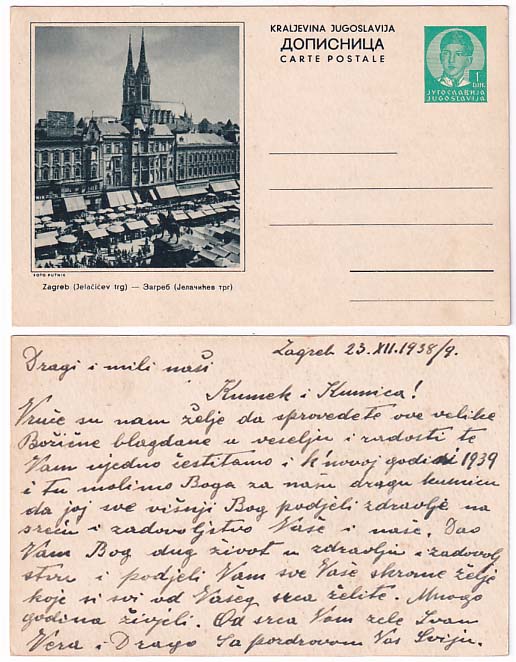 KRALJEVINA JUGOSLAVIJA
ДОПИСНИЦА
CARTE POSTALE
1
DIN.
ЈУГОСЛАВИЈА
JUGOSLAVIJA
FOTO PUTNIK
Zagreb (Jelačićev trg) — Загреб (Јелачићев трг)
Zagreb 23.XII.1938/9.
Dragi i mili naši
Kumek i Kumica!
Vruće su nam želje da sprovedete ove velike
Božićne blagdane u veselju i radosti te
Vam ujedno čestitamo i k novoj godini 1939
i tu molimo Boga za našu dragu kumicu
da joj sve višnji Bog podjeli zdravlje na
sreću i zadovoljstvo Vaše i naše. Dao
Vam Bog dug život u zdravlju i zadovolj
stvu i podjeli Vam sve Vaše skromne želje
koje si svi od Vašeg srca želite. Mnogo
godina živjeli. Od srca Vam žele Ivan
Vera i Drago Sa pozdravom Vas Sviju.